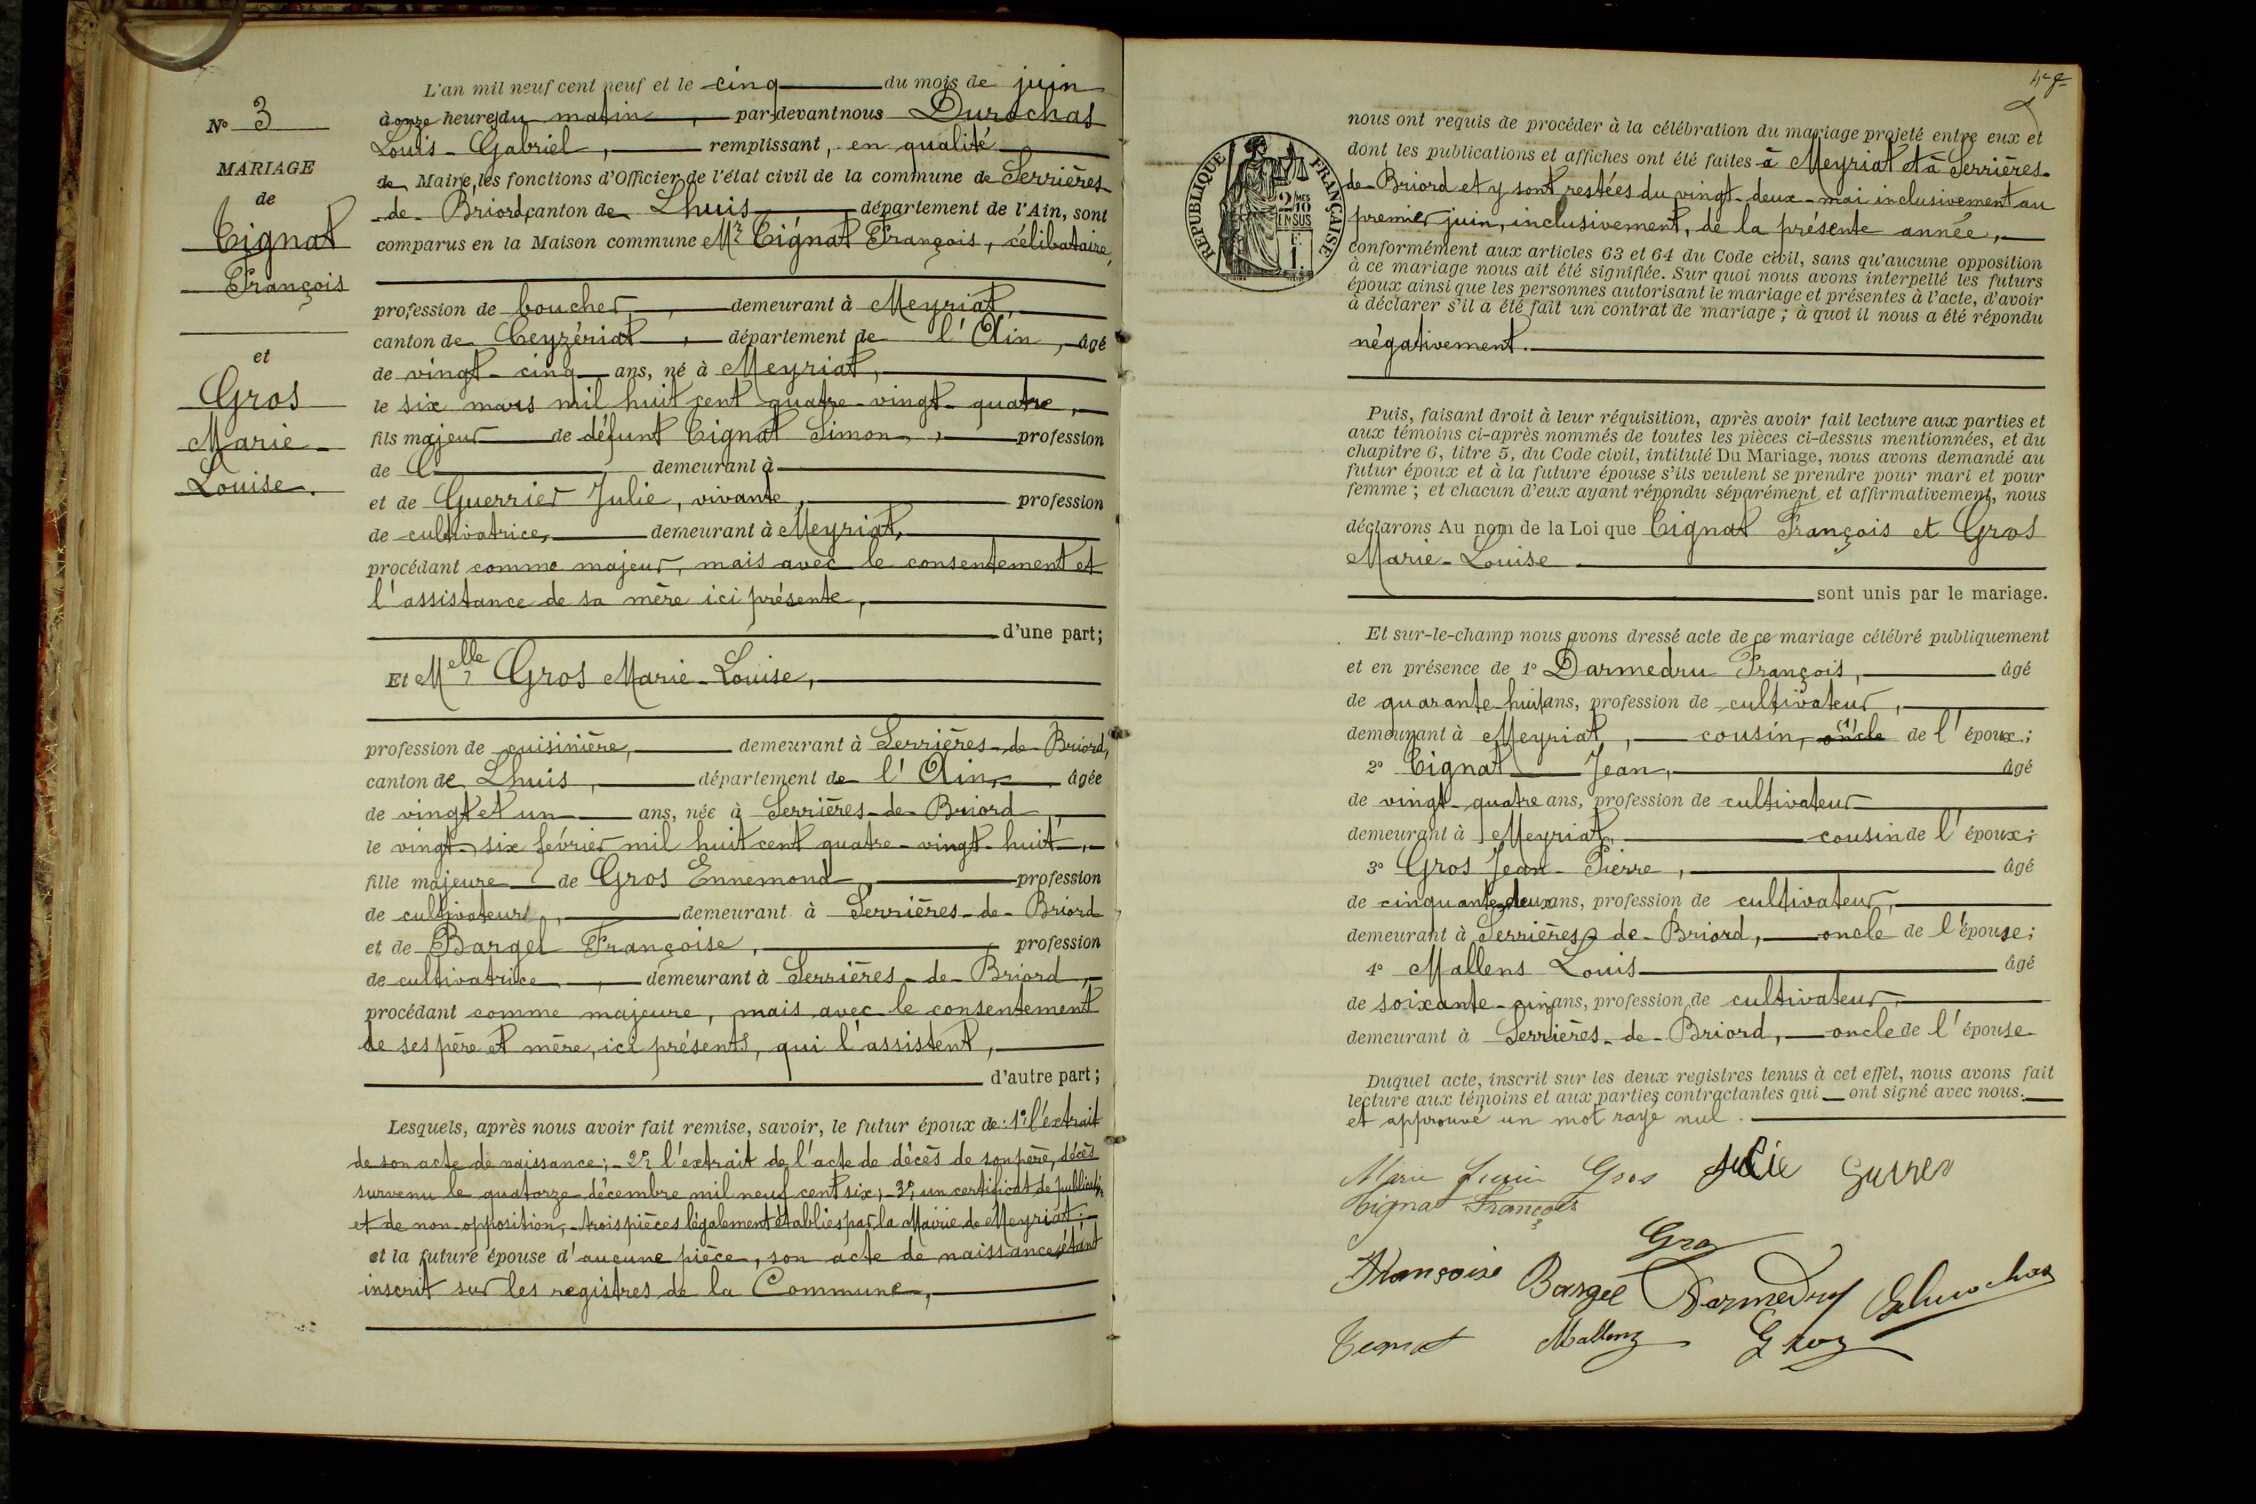 N° 3
MARIAGE
de
Tignat
François
et
Gros
Marie-
Louise.
L'an mil neuf cent neuf et le cinq du mois de juin
à onze heures du matin, par-devant nous Durochat
Louis-Gabriel, remplissant, en qualité
de Maire, les fonctions d'Officier de l'état civil de la commune de Serrières-
de-Briord, canton de Lhuis département de l'Ain, sont
comparus en la Maison commune Mr Tignat François, célibataire,
profession de boucher, demeurant à Meyriat,
canton de Ceyzériat, département de l'Ain, âgé
de vingt-cinq ans, né à Meyriat,
le six mars mil huit cent quatre-vingt-quatre,
fils majeur de défunt Tignat Simon, profession
de demeurant à
et de Guerrier Julie, vivante, profession
de cultivatrice, demeurant à Meyriat,
procédant comme majeur, mais avec le consentement et
l'assistance de sa mère ici présente,
d'une part;
Et Melle Gros Marie-Louise,
profession de cuisinière, demeurant à Serrières-de-Briord,
canton de Lhuis, département de l'Ain, âgée
de vingt et un ans, née à Serrières-de-Briord,
le vingt-six février mil huit cent quatre-vingt-huit,
fille majeure de Gros Ennemond, profession
de cultivateur, demeurant à Serrières-de-Briord
et de Bargel Françoise, profession
de cultivatrice, demeurant à Serrières-de-Briord,
procédant comme majeure, mais avec le consentement
de ses père et mère, ici présents, qui l'assistent,
d'autre part;
Lesquels, après nous avoir fait remise, savoir, le futur époux de: 1° l'extrait
de son acte de naissance; - 2° l'extrait de l'acte de décès de son père, décès
survenu le quatorze décembre mil neuf cent six; - 3° un certificat de publication
et de non-opposition, - trois pièces légalement établies par la Mairie de Meyriat;
et la future épouse d'aucune pièce, son acte de naissance étant
inscrit sur les registres de la Commune,
RÉPUBLIQUE FRANÇAISE
2 MES
10
EN SUS
F.
1.
nous ont requis de procéder à la célébration du mariage projeté entre eux et
dont les publications et affiches ont été faites à Meyriat et à Serrières-
de-Briord et y sont restées du vingt-deux-mai inclusivement au
premier juin, inclusivement, de la présente année,
conformément aux articles 63 et 64 du Code civil, sans qu'aucune opposition
à ce mariage nous ait été signifiée. Sur quoi nous avons interpellé les futurs
époux ainsi que les personnes autorisant le mariage et présentes à l'acte, d'avoir
à déclarer s'il a été fait un contrat de mariage; à quoi il nous a été répondu
négativement.
Puis, faisant droit à leur réquisition, après avoir fait lecture aux parties et
aux témoins ci-après nommés de toutes les pièces ci-dessus mentionnées, et du
chapitre 6, titre 5, du Code civil, intitulé Du Mariage, nous avons demandé au
futur époux et à la future épouse s'ils veulent se prendre pour mari et pour
femme; et chacun d'eux ayant répondu séparément et affirmativement, nous
déclarons Au nom de la Loi que Tignat François et Gros
Marie-Louise
sont unis par le mariage.
Et sur-le-champ nous avons dressé acte de ce mariage célébré publiquement
et en présence de 1° Darmedru François, âgé
de quarante-huit ans, profession de cultivateur,
demeurant à Meyriat, cousin, oncle de l'époux;
2° Tignat Jean, âgé
de vingt-quatre ans, profession de cultivateur
demeurant à Meyriat, cousin de l'époux;
3° Gros Jean-Pierre, âgé
de cinquante-deux ans, profession de cultivateur,
demeurant à Serrières-de-Briord, oncle de l'épouse;
4° Mallens Louis âgé
de soixante-cinq ans, profession de cultivateur,
demeurant à Serrières-de-Briord, oncle de l'épouse
Duquel acte, inscrit sur les deux registres tenus à cet effet, nous avons fait
lecture aux témoins et aux parties contractantes qui ont signé avec nous.
et approuvé un mot rayé nul.
Marie Gros Julie
Tignat François
Gros
Françoise Bargel Darmedru Durochat
Tignat Mallens Gros